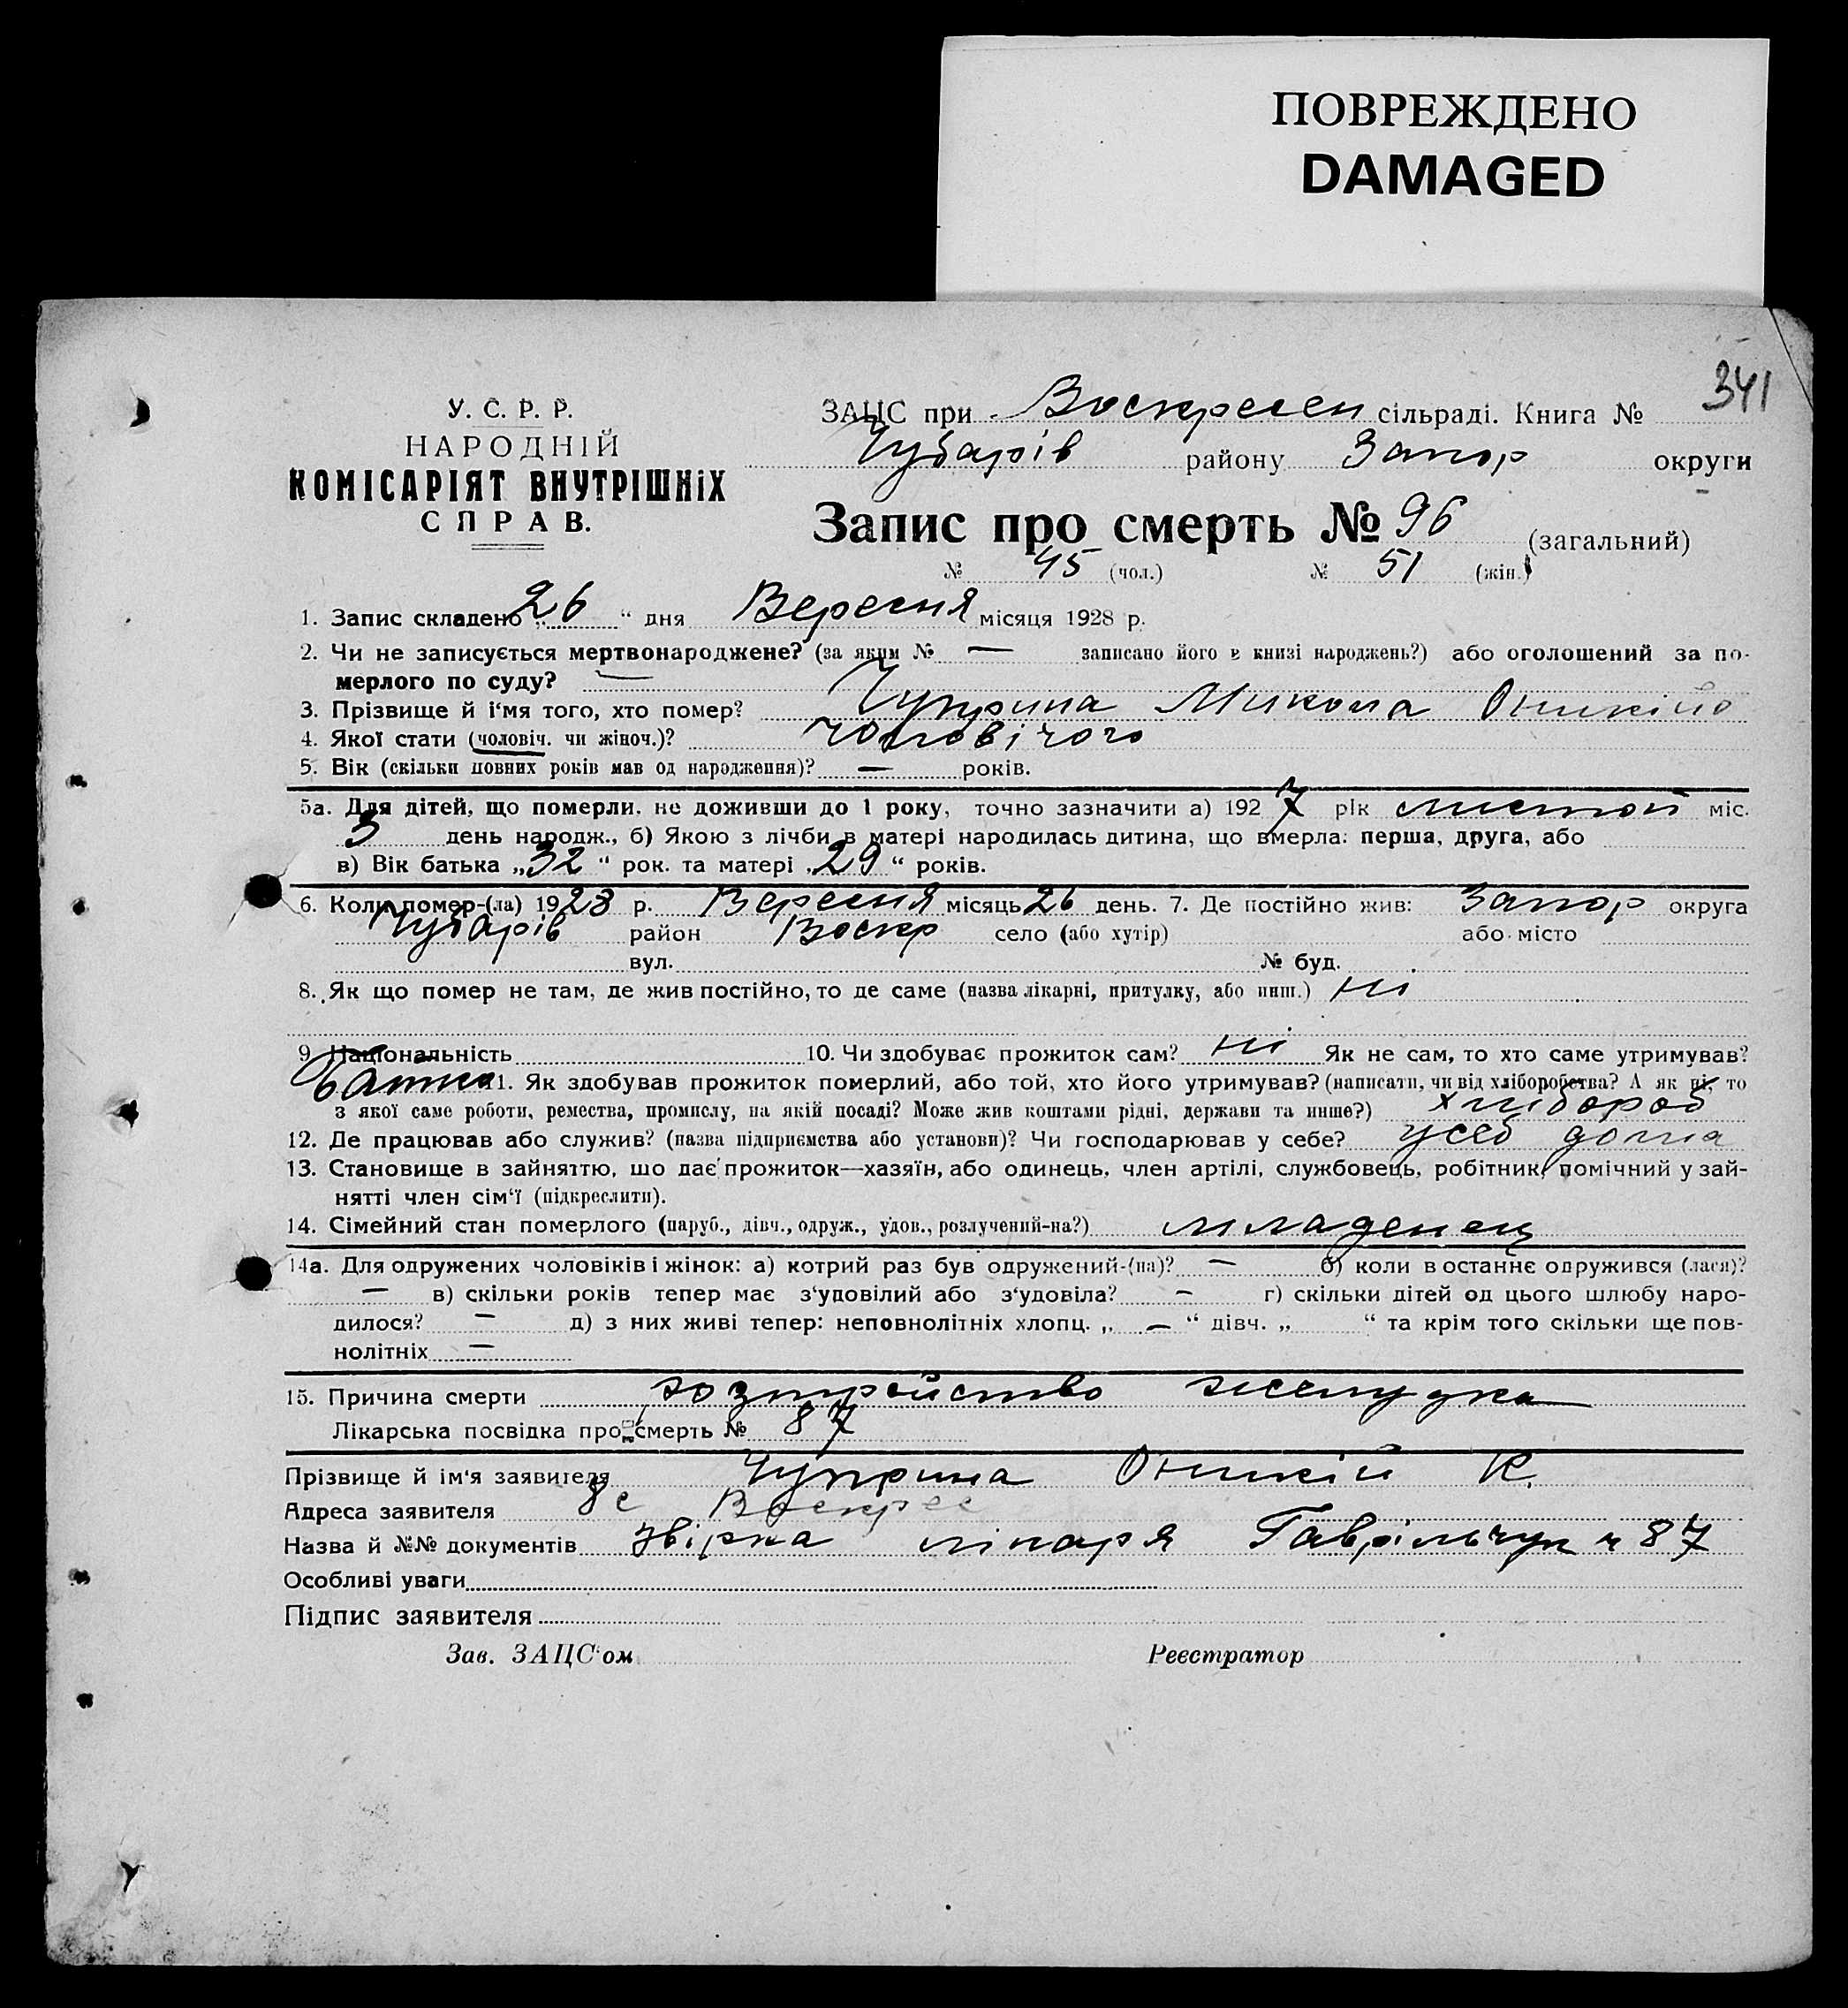 ПОВРЕЖДЕНО
DAMAGED
341
У. С. Р. Р.
НАРОДНІЙ
КОМІСАРІЯТ ВНУТРІШНІХ
СПРАВ.
ЗАЦС при Воскресен сільраді. Книга №
Чубарів району Запор округи
Запис про смерть № 96 (загальний)
№ 45 (чол.) № 51 (жін.)
1. Запис складено „26“ дня Вересня місяця 1928 р.
2. Чи не записується мертвонароджене? (за яким № — записано його в книзі народжень?) або оголошений за по-
мерлого по суду? —
3. Прізвище й і‘мя того, хто помер? Чуприна Микола Оникійо
4. Якої стати (чоловіч. чи жіноч.)? чоловічого
5. Вік (скільки повних років мав од народження)? — років.
5а. Для дітей, що померли, не доживши до 1 року, точно зазначити а) 1927 рік листоп міс.
3 день народж., б) Якою з лічби в матері народилась дитина, що вмерла: перша, друга, або
в) Вік батька „32“ рок. та матері „29“ років.
6. Коли помер-(ла) 1928 р. Вересня місяць 26 день. 7. Де постійно жив: Запор округа
Чубарів район Воскр село (або хутір) або місто
вул. № буд.
8. Як що помер не там, де жив постійно, то де саме (назва лікарні, притулку, або инш.) ні
9. Національність 10. Чи здобуває прожиток сам? ні Як не сам, то хто саме утримував?
батько 11. Як здобував прожиток померлий, або той, хто його утримував? (написати, чи від хліборобства? А як ні, то
з якої саме роботи, ремества, промислу, на якій посаді? Може жив коштами рідні, держави та инше?) хлібороб
12. Де працював або служив? (назва підприємства або установи)? Чи господарював у себе? усеб дома
13. Становище в зайняттю, що дає прожиток—хазяїн, або одинець, член артілі, службовець, робітник, помічний у зай-
нятті член сім‘ї (підкреслити).
14. Сімейний стан померлого (паруб., дівч., одруж., удов., розлучений-на?) младенец
14а. Для одружених чоловіків і жінок: а) котрий раз був одружений-(на)? — б) коли в останнє одружився (лася)?
— в) скільки років тепер має з‘удовілий або з‘удовіла? — г) скільки дітей од цього шлюбу наро-
дилося? — д) з них живі тепер: неповнолітніх хлопц. „ — “ дівч. „ “ та крім того скільки ще пов-
нолітніх —
15. Причина смерти розтройство желудка
Лікарська посвідка про смерть № 87
Прізвище й ім‘я заявителя Чуприна Оникій К.
Адреса заявителя 8 с Воскрес
Назва й №№ документів звірка лікаря Гаврільчук ч 87
Особливі уваги
Підпис заявителя
Зав. ЗАЦС‘ом Реєстратор